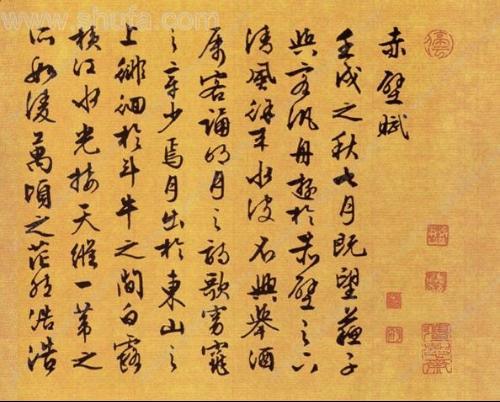 赤壁賦
壬戌之秋七月既望蘇子
與客汎舟遊於赤壁之下
清風徐來水波不興舉酒
屬客誦明月之詩歌窈窕
之章少焉月出於東山之
上徘徊於斗牛之間白露
橫江水光接天縱一葦之
所如凌萬頃之茫然浩浩
www.shufa.com